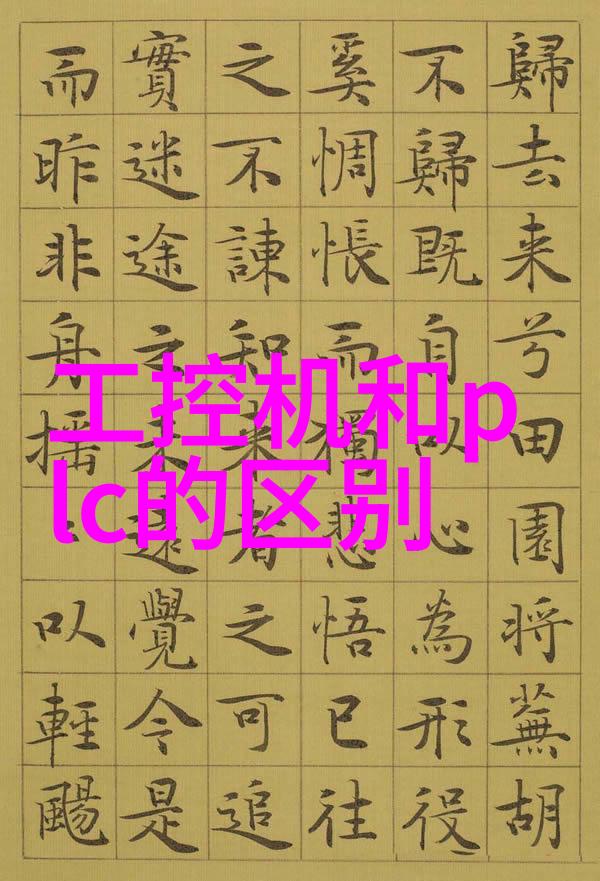 歸去来兮田園将蕪胡
不歸既自以心為形役
奚惆悵而獨悲悟已往
之不諫知来者之可追
實迷途之未遠覺今是
而昨非舟揺〻以輕颺
工控机和p
lc的区别